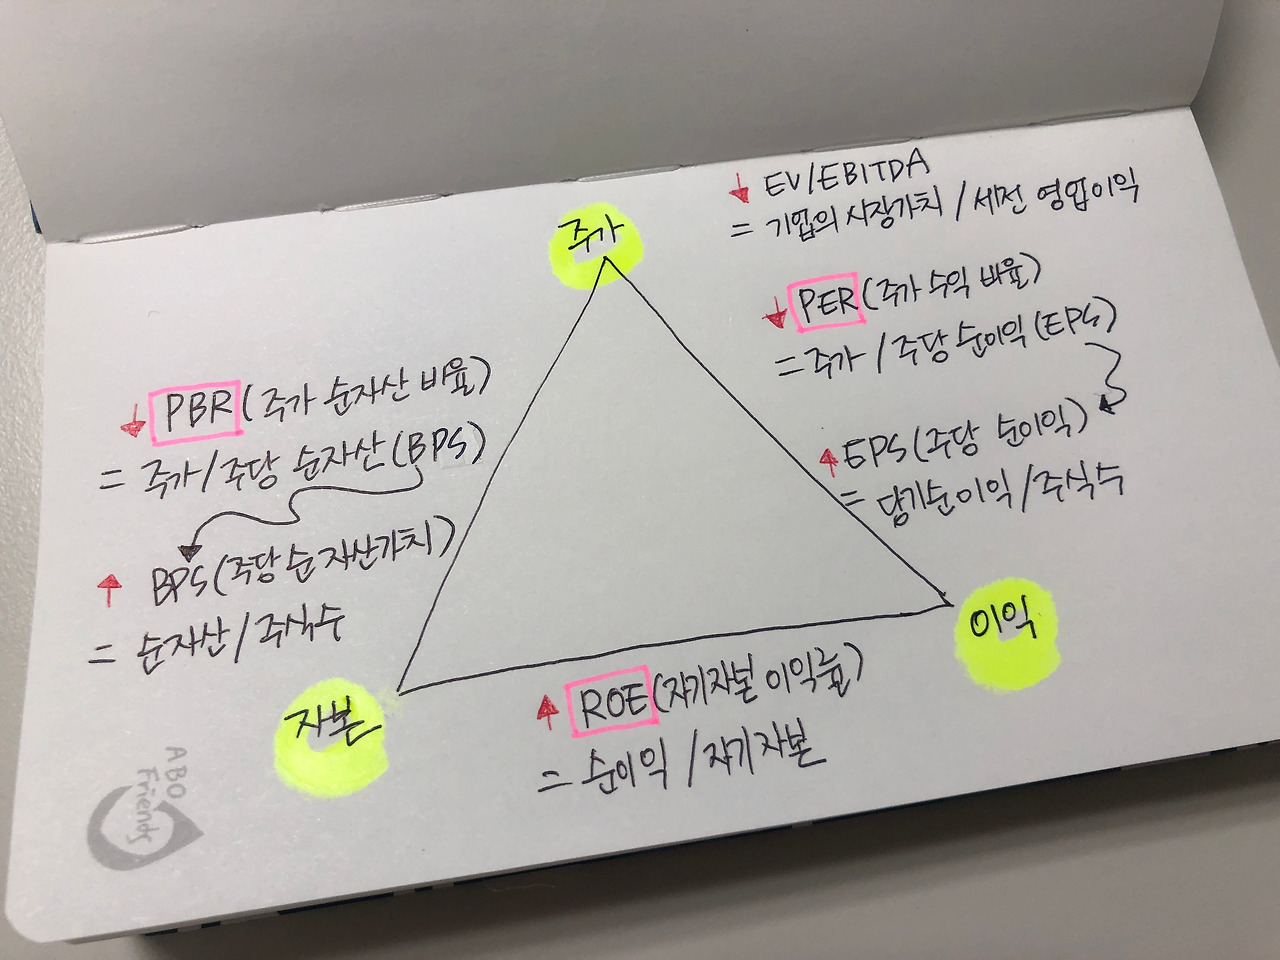 주가
EV/EBITDA
= 기업의 시장가치 / 세전 영업이익
PER(주가 수익 비율)
= 주가 / 주당 순이익 (EPS)
EPS (주당 순이익)
= 당기순이익 / 주식수
PBR (주가 순자산 비율)
= 주가 / 주당 순자산 (BPS)
BPS (주당 순자산가치)
= 순자산 / 주식수
이익
자본
ROE (자기자본 이익률)
= 순이익 / 자기자본
ABO
Friends